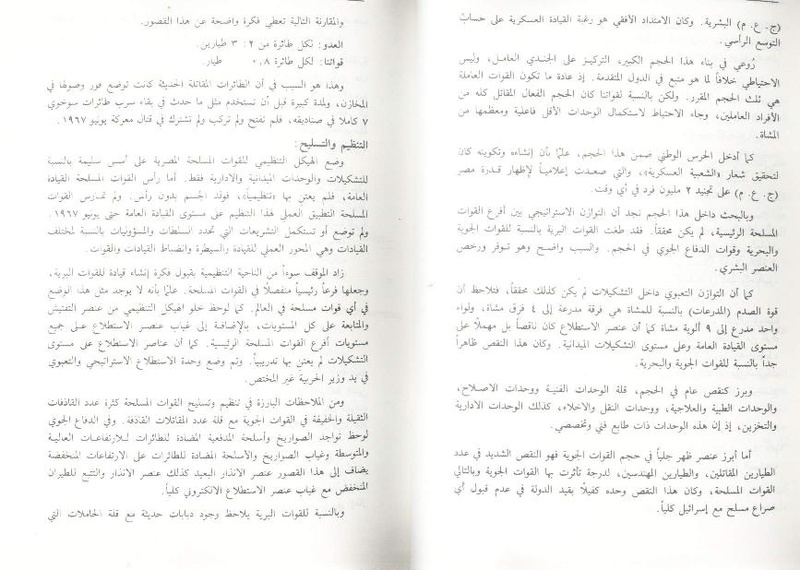 (ج. ع. م) البشرية. وكان الامتداد الأفقي هو رغبة القيادة العسكرية على حساب
التوسع الرأسي.
رُوعي في بناء هذا الحجم الكبير، التركيز على الجندي العامل، وليس
الاحتياطي خلافاً لما هو متبع في الدول المتقدمة. إذ عادة ما تكون القوات العاملة
هي ثلث الحجم المقرر. ولكن بالنسبة لقواتنا كان الحجم الفعال المقاتل كله من
الأفراد العاملين، وجاء الاحتياط لاستكمال الوحدات الأقل فاعلية ومعظمها من
المشاة.
كما أدخل الحرس الوطني ضمن هذا الحجم، علماً بأن إنشاءه وتكوينه كان
لتحقيق شعار «الشعبية العسكرية»، والتي صعدت إعلامياً لإظهار قدرة مصر
(ج. ع. م) على تجنيد ٢ مليون فرد في أي وقت.
وبالبحث داخل هذا الحجم نجد أن التوازن الاستراتيجي بين أفرع القوات
المسلحة الرئيسية، لم يكن محققاً. فقد طغت القوات البرية بالنسبة للقوات الجوية
والبحرية وقوات الدفاع الجوي في الحجم. والسبب واضح وهو توفر ورخص
العنصر البشري.
كما أن التوازن التعبوي داخل التشكيلات لم يكن كذلك محققاً، فتلاحظ أن
قوة الصدم (المدرعات) بالنسبة للمشاة هي فرقة مدرعة إلى ٤ فرق مشاة، ولواء
واحد مدرع إلى ٩ ألوية مشاة كما أن عنصر الاستطلاع كان ناقصاً بل مهملاً على
مستوى القيادة العامة وعلى مستوى التشكيلات الميدانية. وكان هذا النقص ظاهراً
جداً بالنسبة للقوات الجوية والبحرية.
وبرز كنقص عام في الحجم، قلة الوحدات الفنية ووحدات الاصلاح،
والوحدات الطبية والعلاجية، ووحدات النقل والاخلاء، كذلك الوحدات الادارية
والتخزين، إذ إن هذه الوحدات ذات طابع فني وتخصصي.
أما أبرز عنصر ظهر جلياً في حجم القوات الجوية فهو النقص الشديد في عدد
الطيارين المقاتلين، والطيارين المهندسين، لدرجة تأثرت بها القوات الجوية وبالتالي
القوات المسلحة، وكان هذا النقص وحده كفيلاً بقيد الدولة في عدم قبول أي
صراع مسلح مع إسرائيل كلياً.
والمقارنة التالية تعطي فكرة واضحة عن هذا القصور.
العدو: لكل طائرة من ٢: ٣ طيارين.
قواتنا: لكل طائرة ٠,٨ طيار.
وهذا هو السبب في أن الطائرات المقاتلة الحديثة كانت توضع فور وصولها في
المخازن، ولمدة كبيرة قبل أن تستخدم مثل ما حدث في بقاء سرب طائرات سوخوي
٧ كاملا في صناديقه، فلم تفتح ولم تركب ولم تشترك في قتال معركة يونيو ١٩٦٧.
التنظيم والتسليح:
وضع الهيكل التنظيمي للقوات المسلحة المصرية على أسس سليمة بالنسبة
للتشكيلات والوحدات الميدانية والادارية فقط. أما رأس القوات المسلحة القيادة
العامة، فلم يعتن بها «تنظيمياً»، فولد الجسم بدون رأس. ولم تمارس القوات
المسلحة التطبيق العملي لهذا التنظيم على مستوى القيادة العامة حتى يونيو ١٩٦٧.
ولم توضع أو تستكمل التشريعات التي تحدد السلطات والمسؤوليات بالنسبة لمختلف
القيادات وهي المحور العملي للقيادة والسيطرة وانضباط القيادات والقوات.
زاد الموقف سوءاً من الناحية التنظيمية بقبول فكرة إنشاء قيادة للقوات البرية،
وجعلها فرعاً رئيسياً منفصلاً في القوات المسلحة. علماً بأنه لا يوجد مثل هذا الوضع
في أي قوات مسلحة في العالم. كما لوحظ خلو الهيكل التنظيمي من عنصر التفتيش
والمتابعة على كل المستويات، بالإضافة إلى غياب عنصر الاستطلاع على جميع
مستويات أفرع القوات المسلحة الرئيسية. كما أن عناصر الاستطلاع على مستوى
التشكيلات لم يعتن بها تدريبياً. وتم وضع وحدة الاستطلاع الاستراتيجي والتعبوي
في يد وزير الحربية غير المختص.
ومن الملاحظات البارزة في تنظيم وتسليح القوات المسلحة كثرة عدد القاذفات
الثقيلة والخفيفة في القوات الجوية مع قلة عدد المقاتلات القاذفة. وفي الدفاع الجوي
لوحظ تواجد الصواريخ وأسلحة المدفعية المضادة للطائرات للارتفاعات العالية
والمتوسطة وغياب الصواريخ والأسلحة المضادة للطائرات على الارتفاعات المنخفضة
يضاف إلى هذا القصور عنصر الانذار البعيد كذلك عنصر الانذار والتتبع للطيران
المنخفض مع غياب عنصر الاستطلاع الالكتروني كلياً.
وبالنسبة للقوات البرية يلاحظ وجود دبابات حديثة مع قلة الحاملات التي